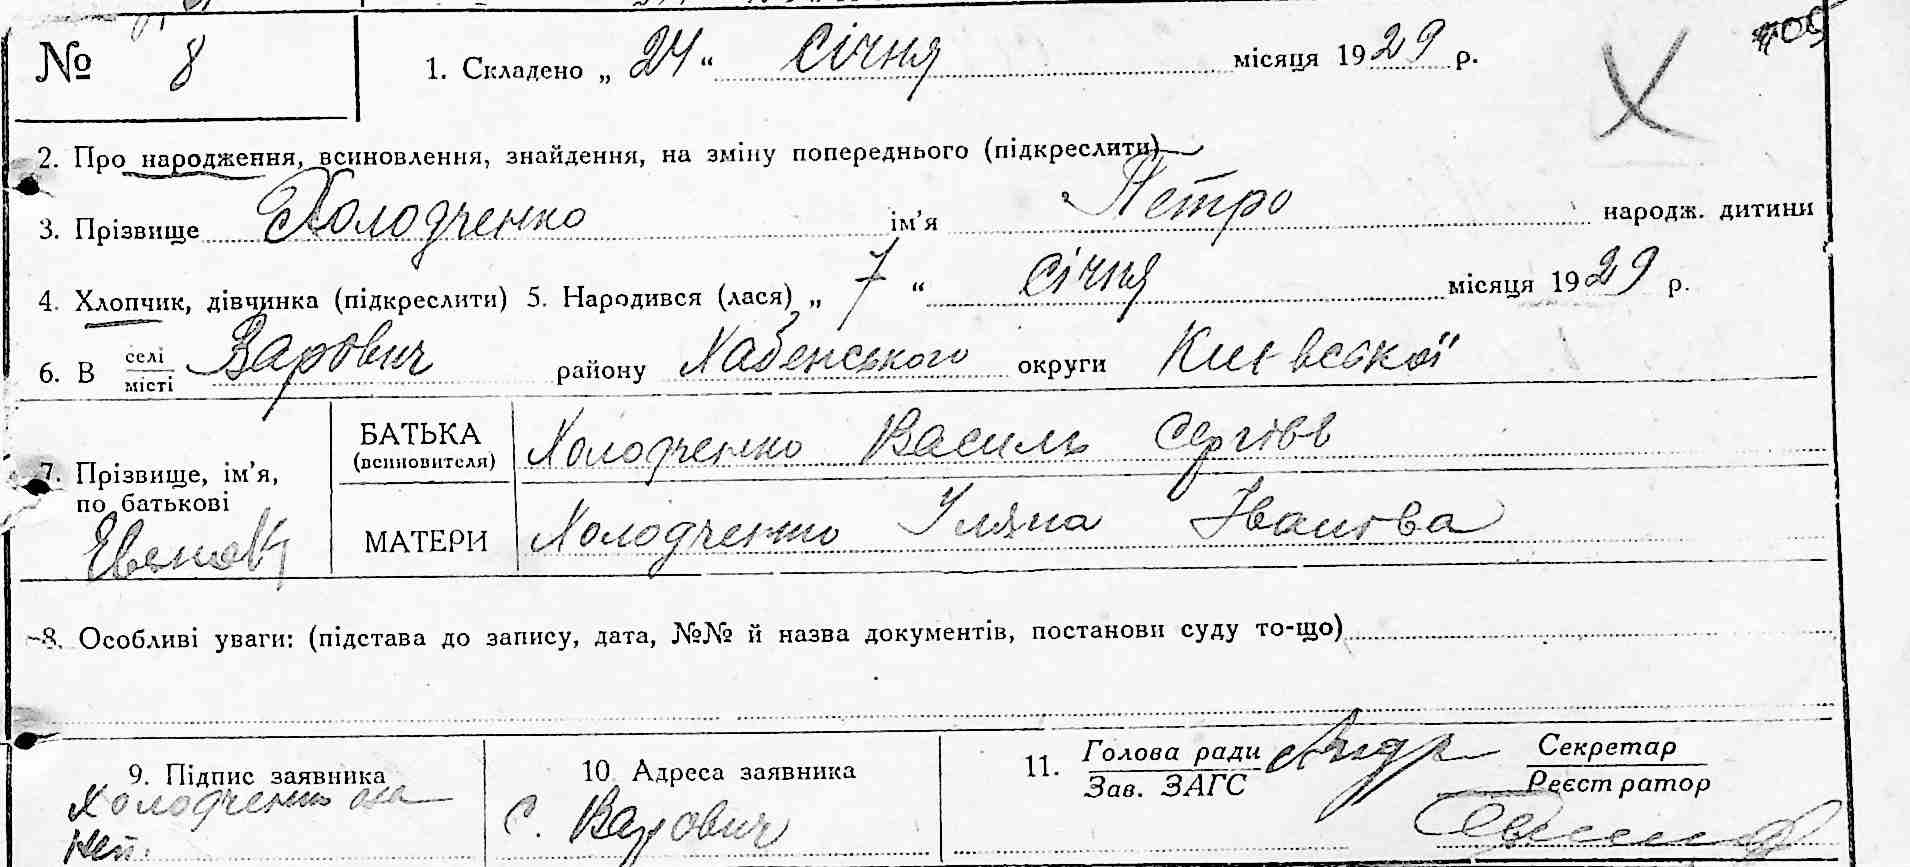 № 8 1. Складено „ 24 “ Січня місяця 1929 р.
2. Про народження, всиновлення, знайдення, на зміну попереднього (підкреслити)
3. Прізвище Холодченко ім’я Петро народж. дитини
4. Хлопчик, дівчинка (підкреслити) 5. Народився (лася) „ 7 “ Січня місяця 1929 р.
6. В селі Варович району Хабенського округи Київської
місті
БАТЬКА Холодченко Василь Сергіів
(всиновителя)
7. Прізвище, ім’я,
по батькові
МАТЕРИ Холодченко Уляна Іванова
8. Особливі уваги: (підстава до запису, дата, №№ й назва документів, постанови суду то-що)
9. Підпис заявника 10. Адреса заявника 11. Голова ради Секретар
Зав. ЗАГС Реєстратор
Холодченко
с. Варович